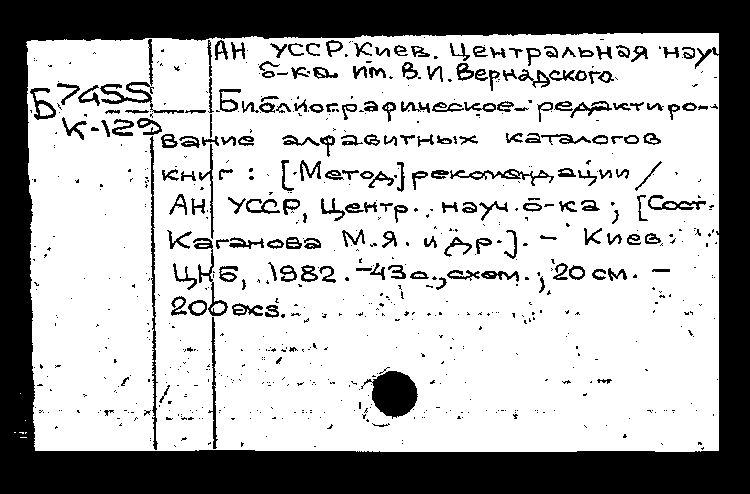 АН УССР. Киев. Центральная науч
б-ка им. В.И. Вернадского
Б 7455
К-129
Библиографическое редактиро-
вание алфавитных каталогов
книг : [Метод.] рекомендации /
АН УССР, Центр. науч. б-ка ; [Сост.
Каганова М.Я. и др.]. – Киев:
ЦНБ, 1982. – 43 с., схем. ; 20 см. –
200 экз.